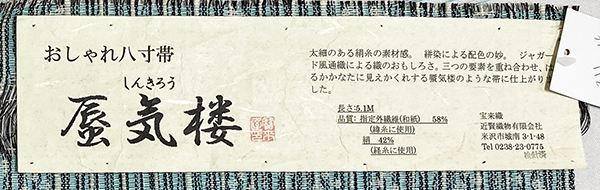 おしゃれ八寸帯
しんきろう
蜃気楼
太細のある絹糸の素材感。 絣染による配色の妙。 ジャガー
ド風通織による織のおもしろさ。三つの要素を重ね合わせ、は
るかかなたに見えかくれする蜃気楼のような帯に仕上がりま
した。
長さ:5.1M
品質: 指定外繊維(和紙) 58%
(緯糸に使用)
絹 42%
(経糸に使用)
宝来織
近賢織物有限会社
米沢市城南 3-1-48
Tel 0238-23-0775